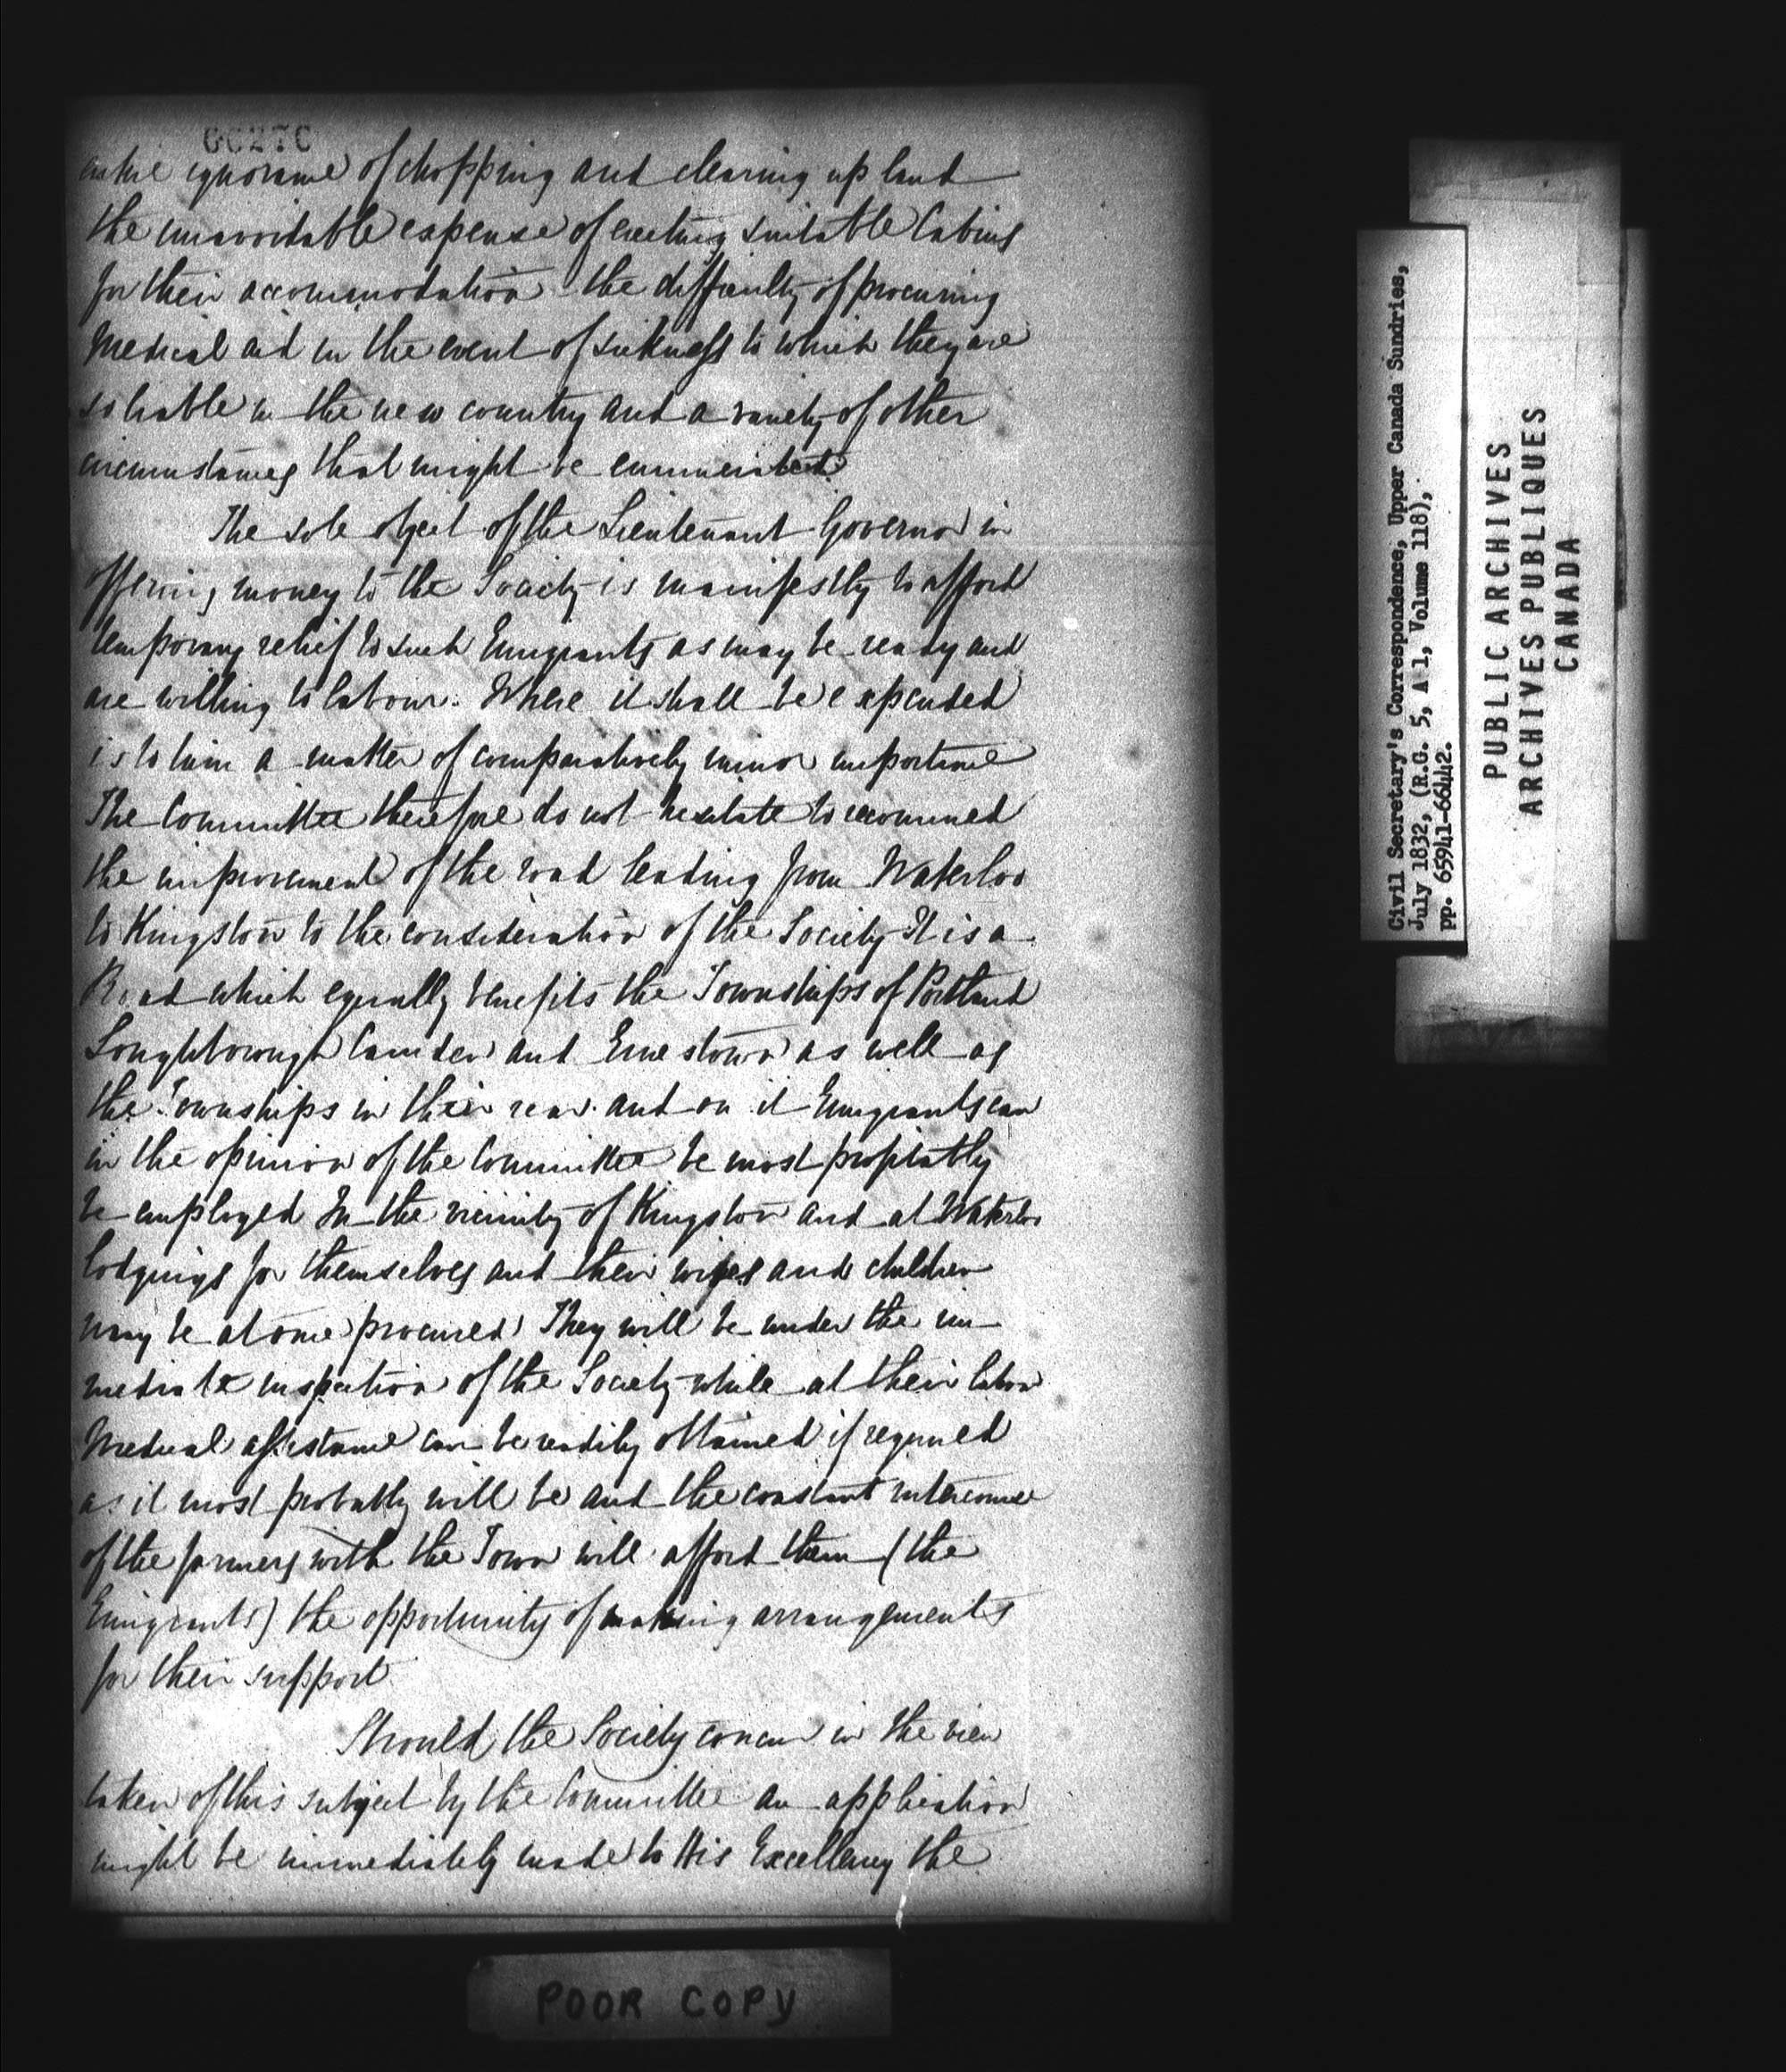 entire ignorance of chopping and clearing up land
the unavoidable expense of erecting suitable Cabins
for their accommodation - the difficulty of procuring
Medical aid in the event of sickness to which they are
so liable in the new country and a variety of other
circumstances that might be enumerated
The sole object of the Lieutenant Governor in
offering money to the Society is manifestly to afford
temporary relief to such Emigrants as may be ready and
are willing to labour. Where it shall be expended
is to him a matter of comparatively minor importance
The Committee therefore do not hesitate to recommend
the improvement of the road leading from Waterloo
to Kingston to the consideration of the Society It is a
Road which equally benefits the Townships of Portland
Loughborough Camden and Ernestown as well as
the Townships in their rear and on it Emigrants can
in the opinion of the Committee be most profitably
be employed In the vicinity of Kingston and at Waterloo
lodgings for themselves and their wives and children
may be at once procured They will be under the im-
mediate inspection of the Society while at their labor
Medical assistance can be readily obtained if required
as it most probably will be and the constant intercourse
of the farmers with the Town will afford them (the
Emigrants) the opportunity of making arrangements
for their support
Should the Society concur in the view
taken of this subject by the Committee an application
might be immediately made to His Excellency the
POOR COPY
Civil Secretary's Correspondence, Upper Canada Sundries,
July 1832, (R.G. 5, A 1, Volume 118),
pp. 65941-66442.
PUBLIC ARCHIVES
ARCHIVES PUBLIQUES
CANADA